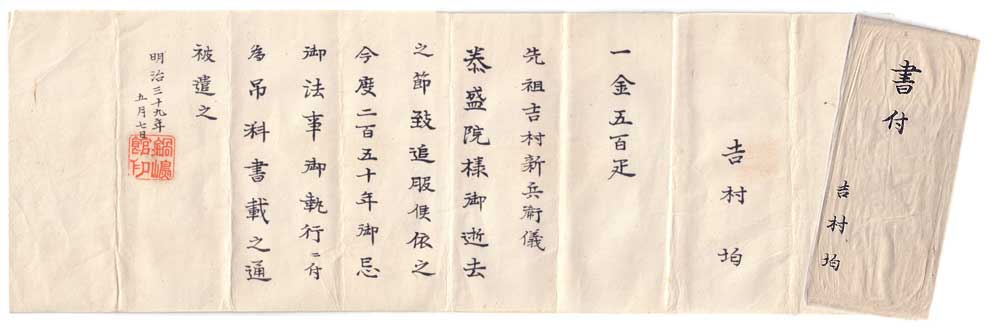 書付
吉村
吉村
一金五百疋
先祖吉村新兵衛儀
泰盛院様御逝去
之節致追服候依之
今度二百五十年御忌
御法事御執行ニ付
為吊料書載之通
被遣之
明治三十九年
五月七日
鍋島
館印